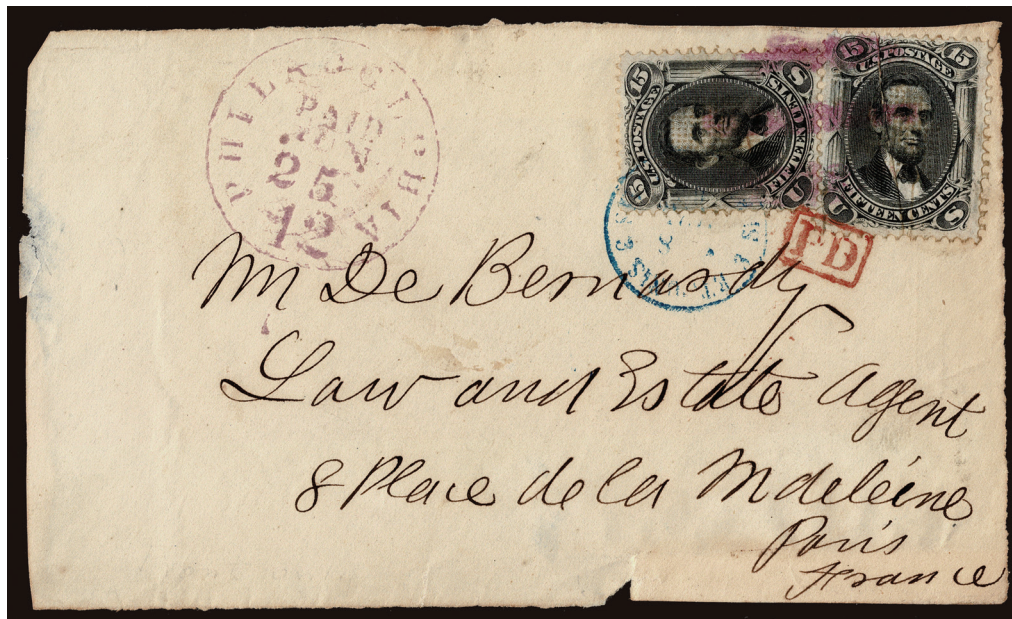 PHILA
PAID
25
12
15
U.S. POSTAGE
15
FIFTEEN CENTS
U S
15
U.S. POSTAGE
15
FIFTEEN CENTS
U S
PD
Mr De Bernardy
Law and Estate Agent
8 Place de la Mdeleine
Paris
France